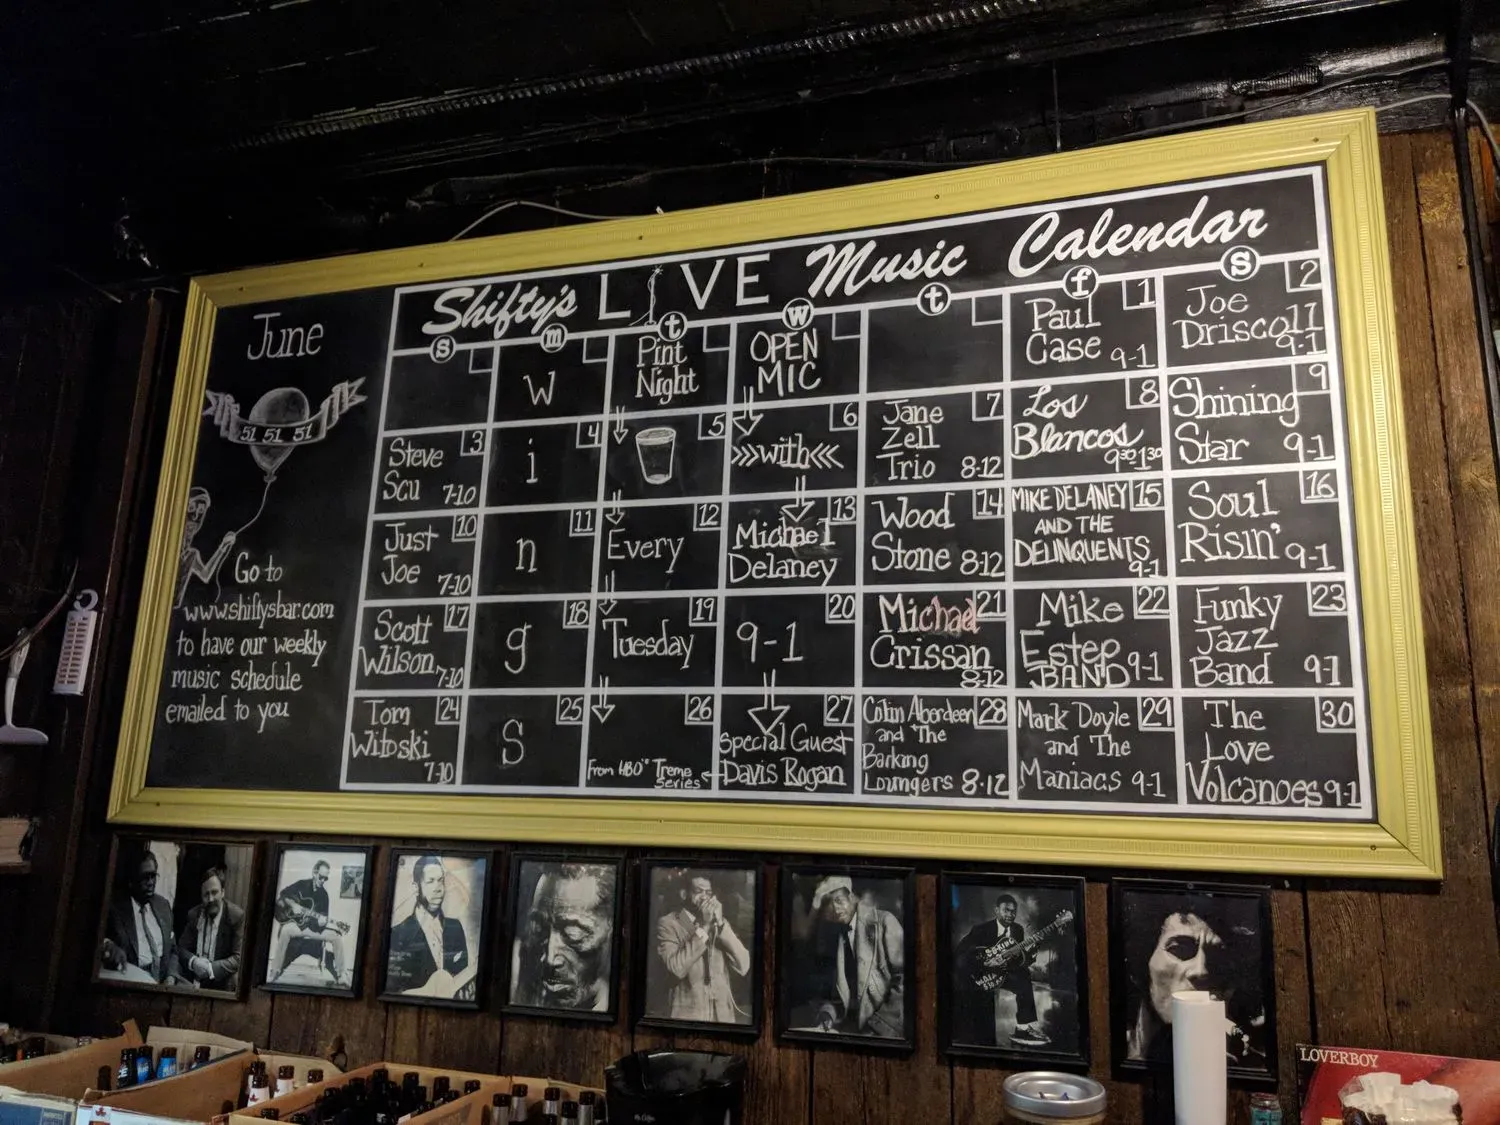 Shifty's LIVE Music Calendar
June
51 51 51
Go to
www.shiftysbar.com
to have our weekly
music schedule
emailed to you
s m t w t f s
W
Pint
Night
OPEN
MIC
1
Paul
Case 9-1
2
Joe
Driscoll
9-1
3
Steve
Scu 7-10
4
i
5
6
>>>with<<<
7
Jane
Zell
Trio 8-12
8
Los
Blancos
9:30-1:30
9
Shining
Star 9-1
10
Just
Joe 7-10
11
n
12
Every
13
Michael
Delaney
14
Wood
Stone 8-12
15
MIKE DELANEY
AND THE
DELINQUENTS
9-1
16
Soul
Risin' 9-1
17
Scott
Wilson 7-10
18
g
19
Tuesday
20
9-1
21
Michael
Crissan
8-12
22
Mike
Estep
BAND 9-1
23
Funky
Jazz
Band 9-1
24
Tom
Witoski
7-10
25
S
26
From HBO's Treme
Series
27
Special Guest
Davis Rogan
28
Colin Aberdeen
and The
Barking
Loungers 8-12
29
Mark Doyle
and The
Maniacs 9-1
30
The
Love
Volcanoes 9-1
B.B. KING
LOVERBOY